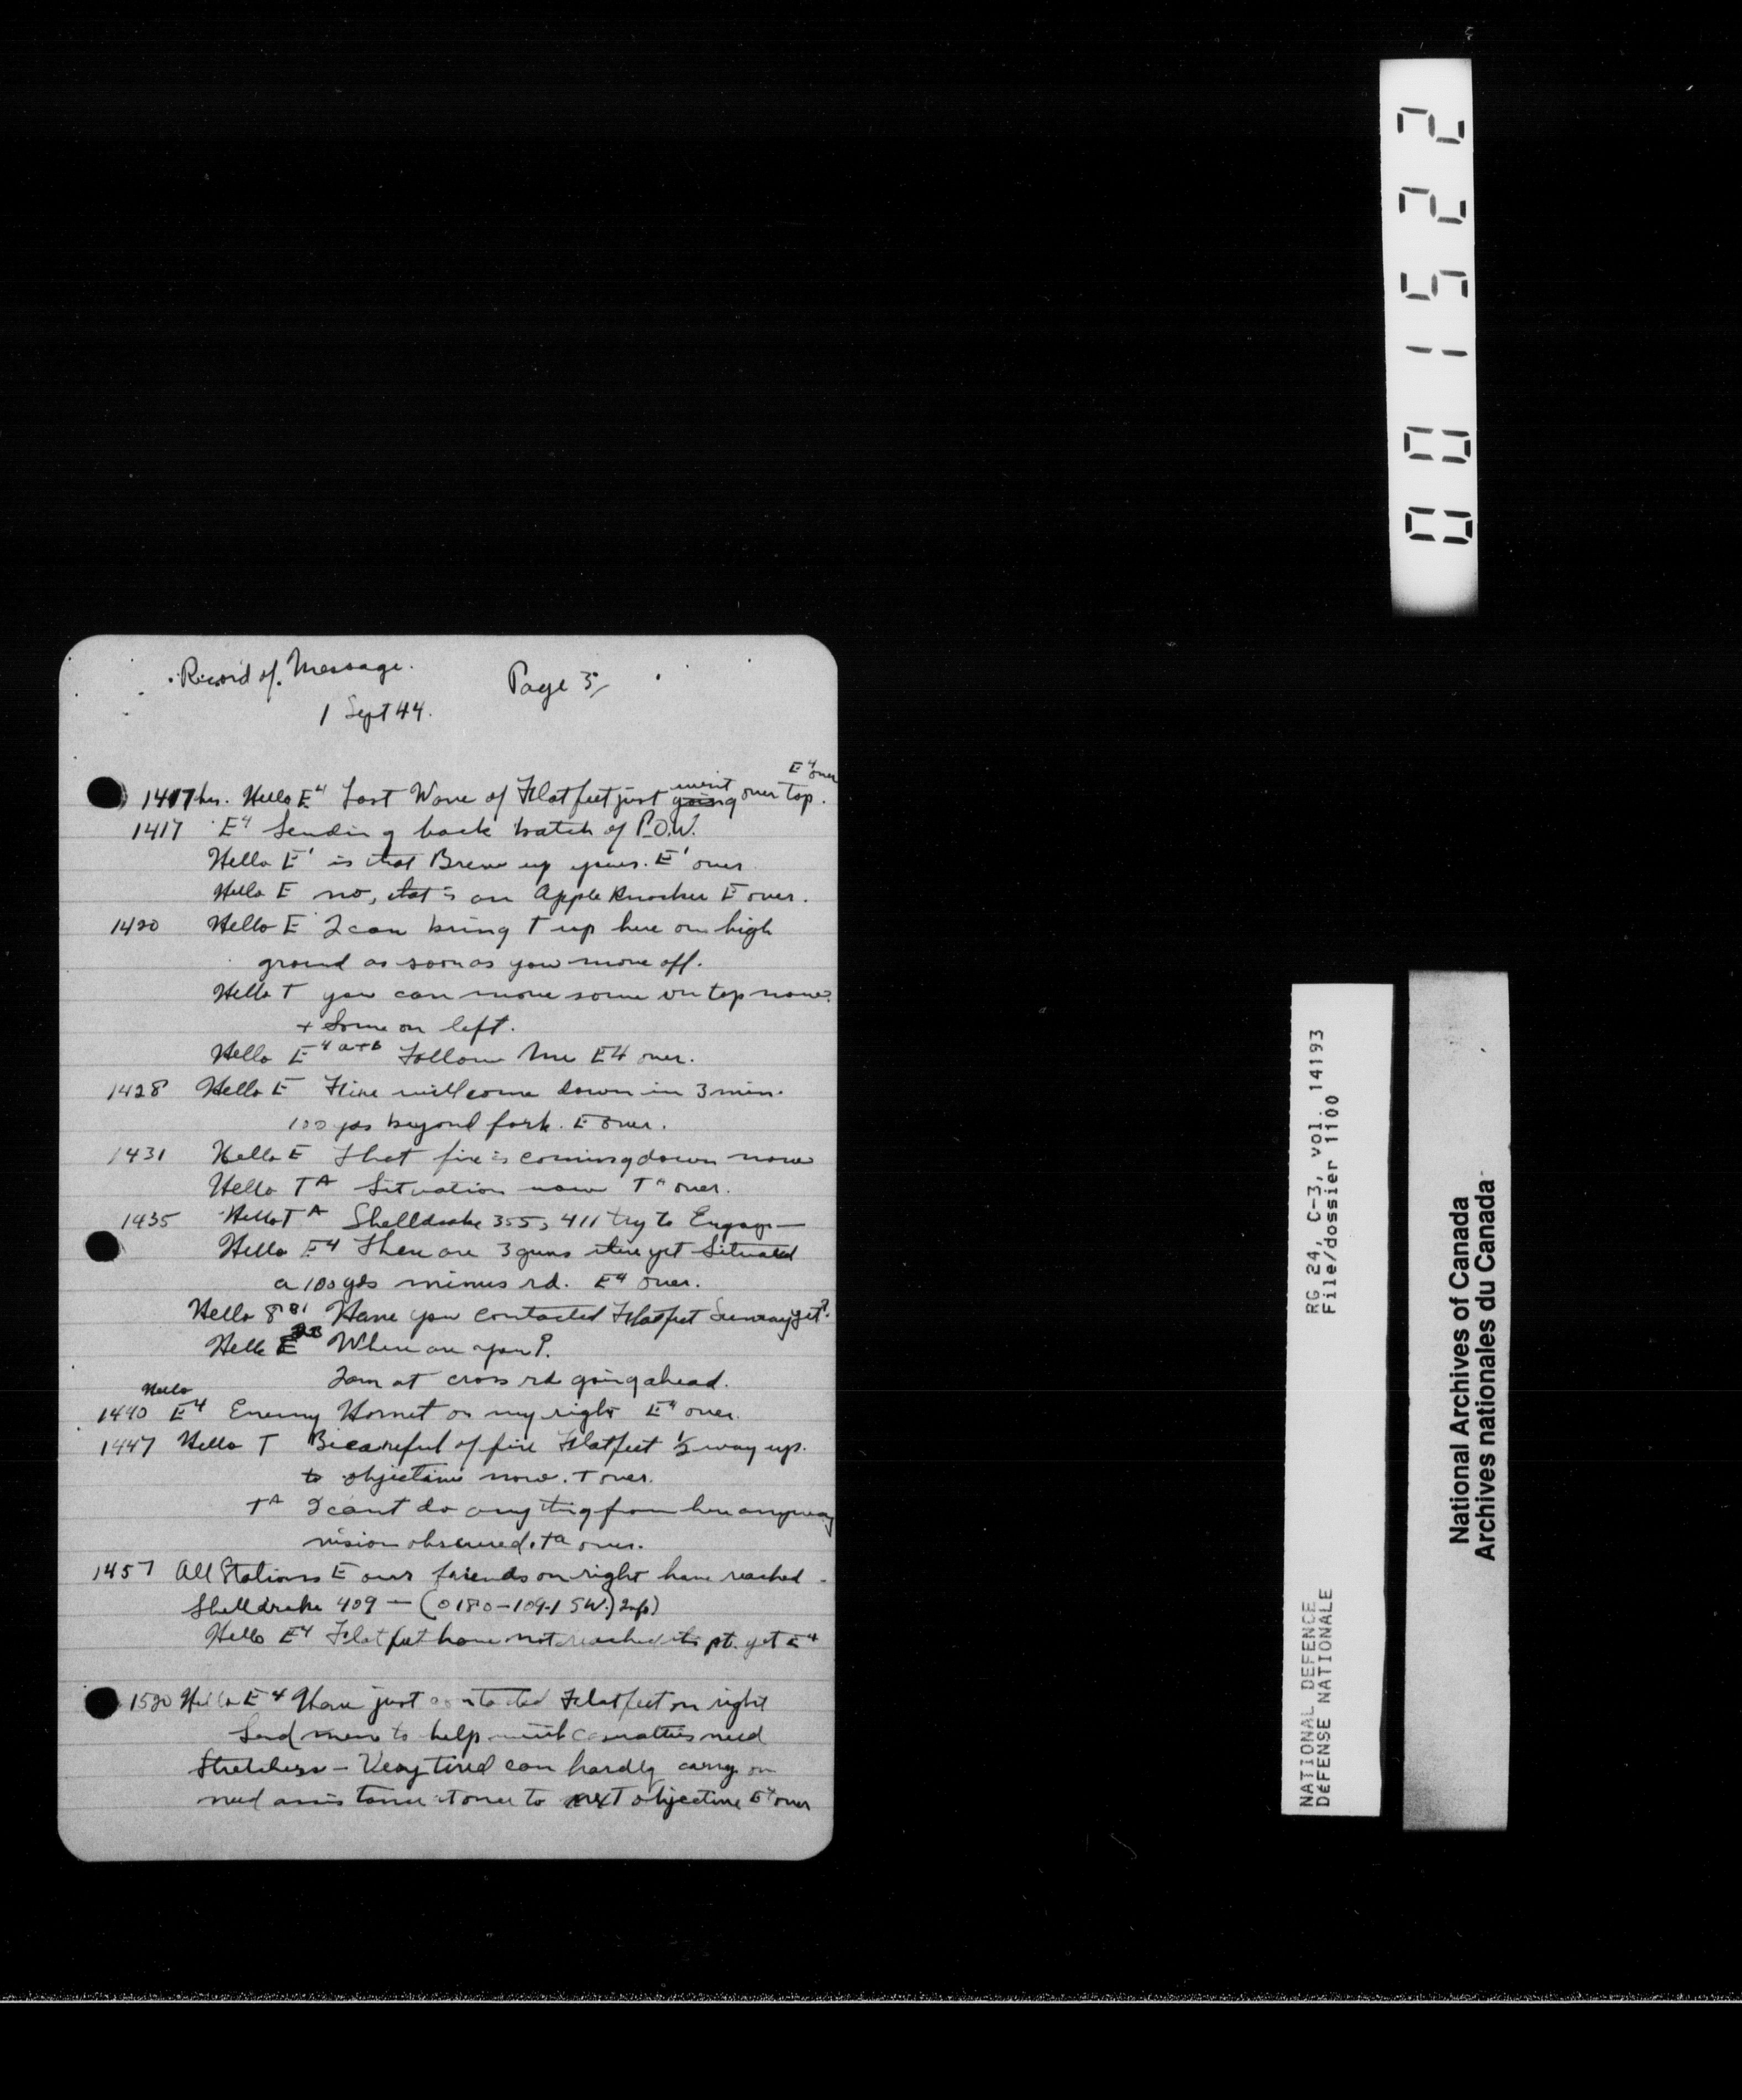 Record of Message.
Page 5/
1 Sept 44.
E4 over
went
1417 hrs. Hello E4 Last Wave of Flatfeet just going over top.
1417 E4 Sending back batch of P.O.W.
Hello E' is that Brew up yours. E' over
Hello E no, that is an Apple Knocker E over.
1420 Hello E I can bring T up here on high
ground as soon as you move off.
Hello T you can move some on top now
+ Some on left.
Hello E 4 a+B Follow me E4 over.
1428 Hello E Fire will come down in 3 min.
100 yds beyond fork. E over.
1431 Hello E that fire is coming down now
Hello TA Situation now TA over.
1435 Hello TA Shelldrake 355, 411 try to Engage —
Hello E4 There are 3 guns there yet Situated
a 100 yds minus rd. E4 over.
Hello 8 Have you contacted Flatfeet Sunray yet?
Hello E Where are you?
I am at cross rd going ahead.
Hello
1440 E4 Enemy Hornet on my right E4 over.
1447 Hello T Be careful of fire Flatfeet ½ way up.
to objective now. T over.
TA I cant do any thing from here anyway
vision obscured. Ta over.
1457 All Stations E our friends on right have reached
Shelldrake 409 — (0180-1091 SW.)
Hello E4 Flatfeet have not reached its pt. yet E4
1520 Hello E4 Have just contacted Flatfeet on right
Send men to help with casualties need
Stretchers - Very tired can hardly carry on
need assistance to next objective E4 over
001522
RG 24, C-3, vol. 14193
File/dossier 1100
NATIONAL DEFENCE
DEFENSE NATIONALE
National Archives of Canada
Archives nationales du Canada